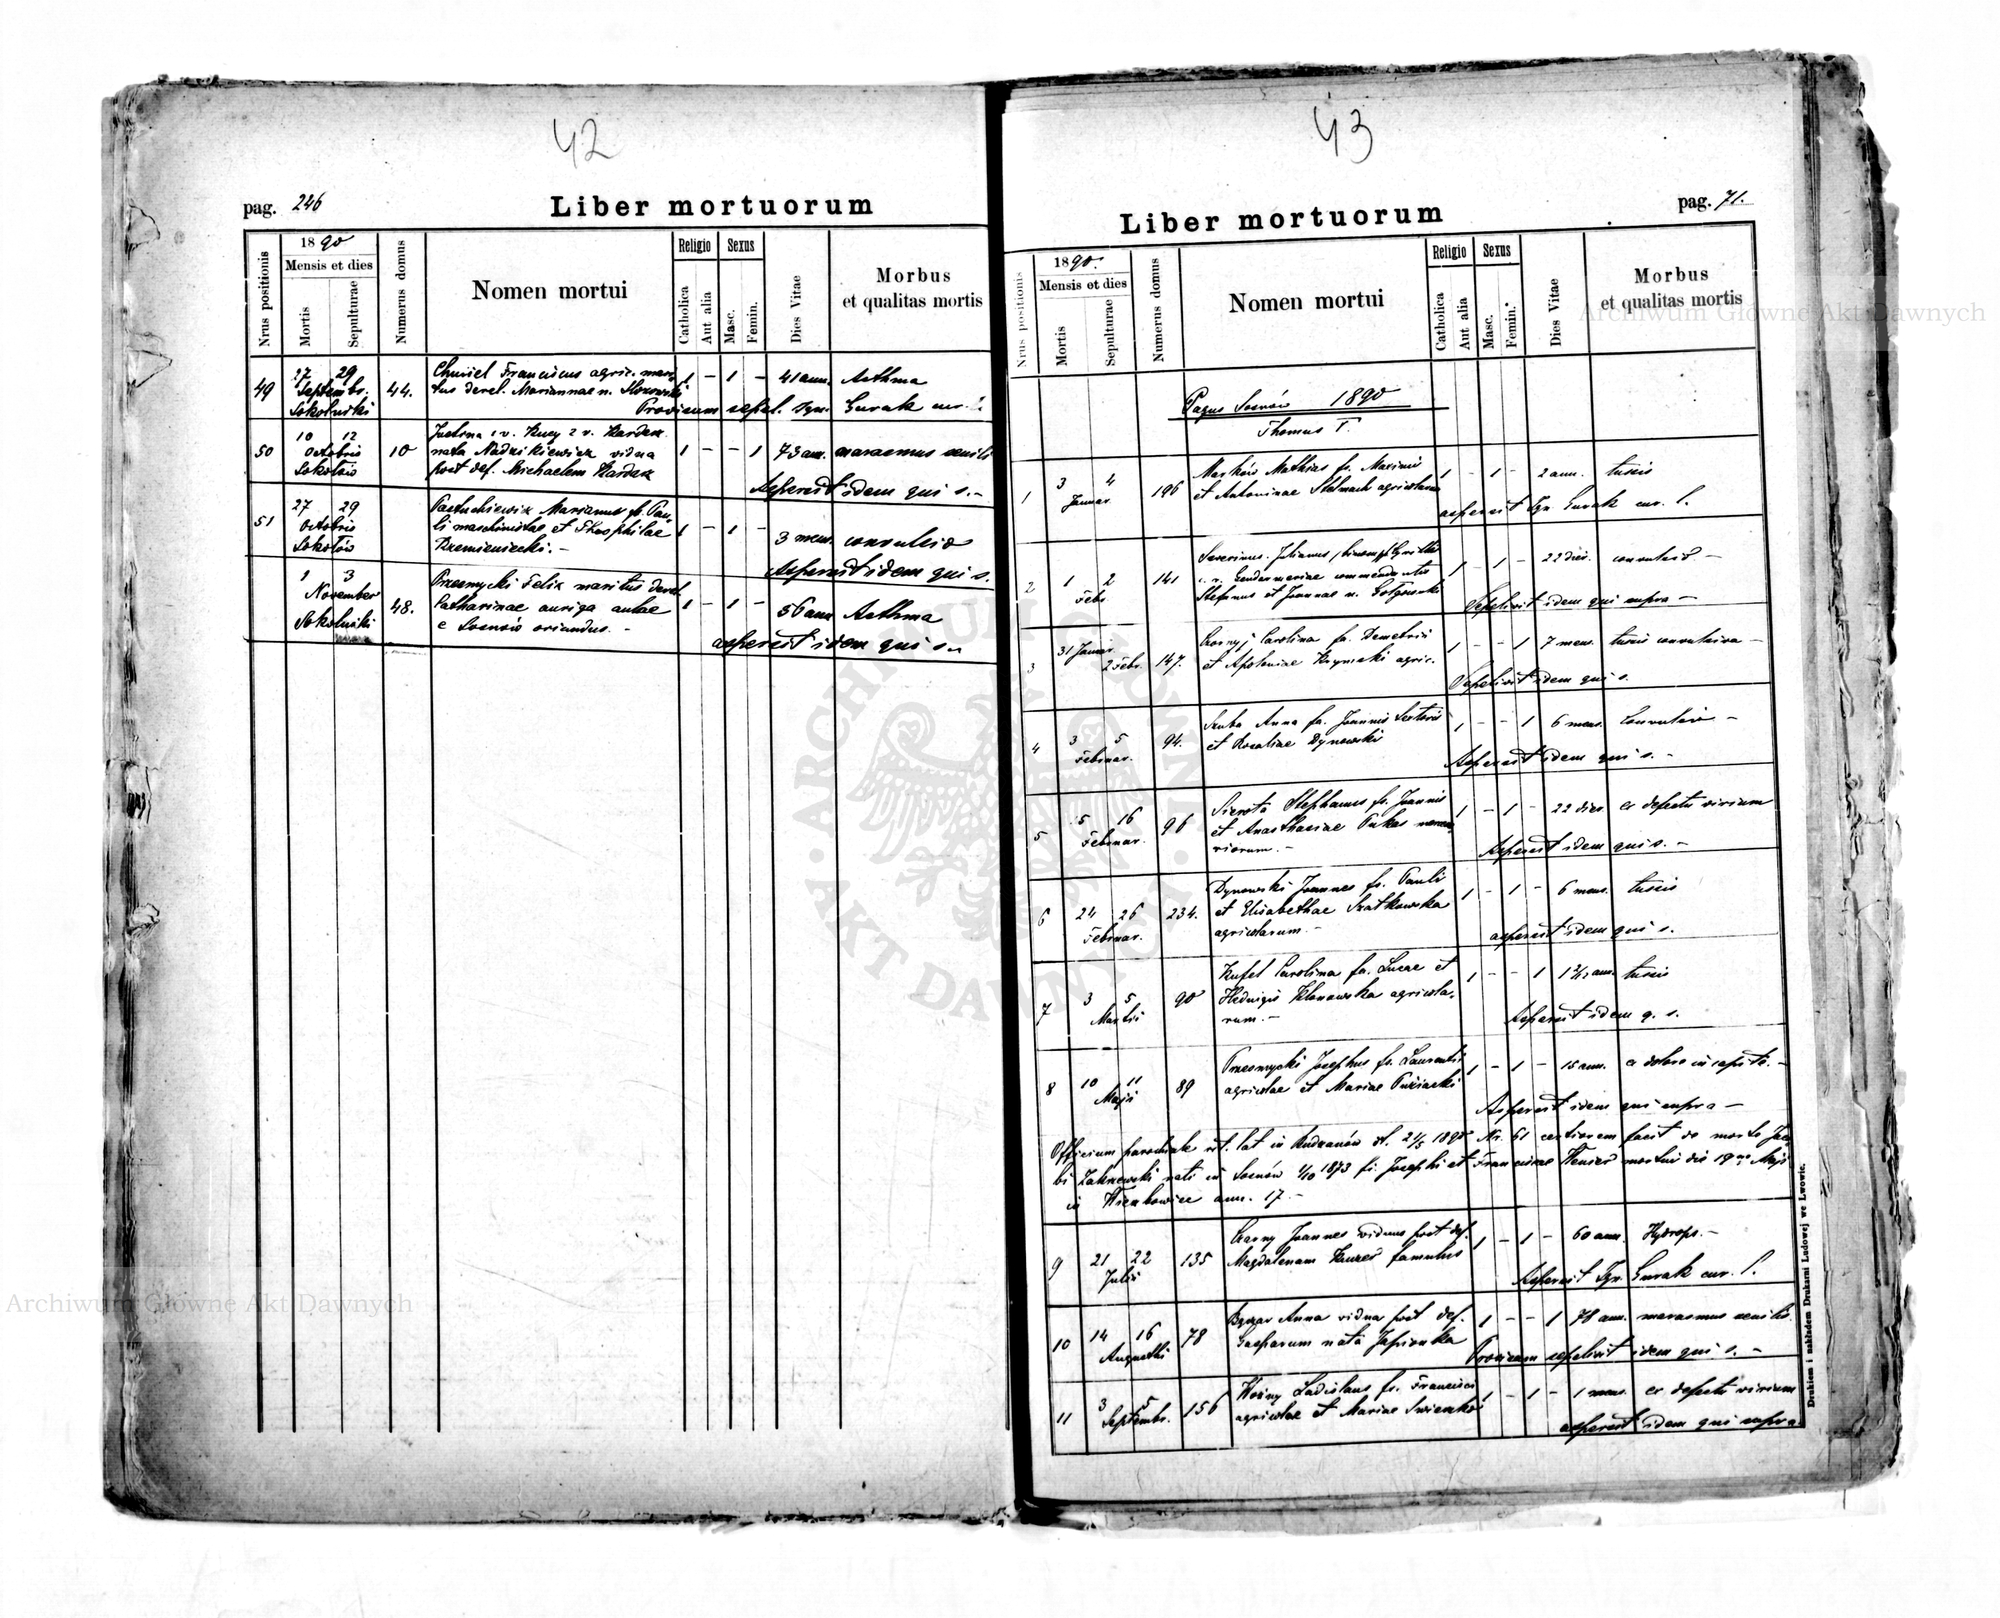 42
pag. 246
Liber mortuorum
Nrus positionis
1890
Mensis et dies
Mortis
Sepulturae
Numerus domus
Nomen mortui
Religio
Catholica
Aut alia
Sexus
Masc.
Femin.
Dies Vitae
Morbus
et qualitas mortis
49
27 29
Septembr.
Sokolniki
44.
Franciscus agric. mari-
tus derel. Mariannae n.
1 - 1 -
41 ann. Asthma
Provisum sepel. Ign. Gurak cur. l.
50
10 12
Octobris
Sokołów
10
Justina 1 v. Kucy 2 v.
nata vidua
post def. Michaelem
1 - - 1
73 ann. marasmus senilis
Asperexit idem qui s. -
51
27 29
Octobris
Sokołów
Pastuchiewicz Marianus fs. Pau-
li maschinistae et Theophilae
Krzemieniecki. -
1 - 1 -
3 mens. convulsio
Asperexit idem qui s.
1 3
November
Sokolniki
48.
Przesmycki Felix maritus derel.
Catharinae auriga aulae
e Sosnów oriundus. -
1 - 1 -
56 ann Asthma
asperexit idem qui s..
43
Liber mortuorum
pag. 71.
Nrus positionis
1890.
Mensis et dies
Mortis
Sepulturae
Numerus domus
Nomen mortui
Religio
Catholica
Aut alia
Sexus
Masc.
Femin.
Dies Vitae
Morbus
et qualitas mortis
Pagus Sosnów 1890
Thomus I.
1
3 4
Januar
196
Mathias fs. Maximi
et Antoninae Stelmach agricolarum
1 - 1 -
2 ann. tussis
asperexit Ign. Gurak cur. l.
2
1 2
Febr.
141
Severinus Julianus
c. r. Gendarmeriae commendantis
et Joannae n.
1 - 1 -
22 dies. convulsio -
Sepelivit idem qui supra -
3
31 Januar.
2 Febr.
147.
Carolina fa. Demetrii
et Apoloniae agric.
1 - - 1
7 mens. tussis convulsiva -
Sepelivit idem qui s.
4
3 5
Februar.
94.
Szuba Anna fa. Joannis
et Rosaliae Dynowski
1 - - 1
6 mens. Convulsio -
Asperexit idem qui s. -
5
16
Februar.
96
Sierota Stephanus fs. Joannis
et Anasthasiae Pukas
1 - 1 -
22 dies ex defectu virium
Asperexit idem qui s. -
6
24 26
Februar.
234.
Dynowski Joannes fs. Pauli
et Elisabethae Szatkowska
agricolarum -
1 - 1 -
6 mens. tussis
asperexit idem qui s.
7
3 5
Martii
90
Carolina fa. Lucae et
Hedvigis agricola-
rum. -
1 - - 1
tussis
Asperexit idem q. s.
8
10 11
Maji
89
Przesmycki Josephus fs. Laurentii
agricolae et Mariae
1 - 1 -
15 ann. ex dolore in capite. -
Asperexit idem qui supra -
Officium parochiale rit. lat in Budzanów dt. 21/5 1890 Nr. 61 certiorem facit de morte Jaco-
bi Zakrzewski nati in Sosnów 1/10 1873 fi. Josephi et Franciscae mortui die 19 Maji
in ann. 17. -
9
21 22
Julii
135
Czarny Joannes viduus post def.
Magdalenam famulus
1 - 1 -
60 ann. Hydrops. -
Asperexit Ign. Gurak cur. l.
10
14 16
Augusti
78
Anna vidua post def.
Gasparum nata
1 - - 1
78 ann. marasmus senilis.
Provisam sepelivit idem qui s. -
11
3 5
Septembr.
156
Woźny Ladislaus fs. Francisci
agricolae et Mariae
1 - 1 -
1 mens. ex defectu virium
asperexit idem qui supra.
Drukiem i nakładem Drukarni Ludowej we Lwowie.
Archiwum Główne Akt Dawnych
Archiwum Główne Akt Dawnych
ARCHIWUM GŁÓWNE · AKT DAWNYCH ·